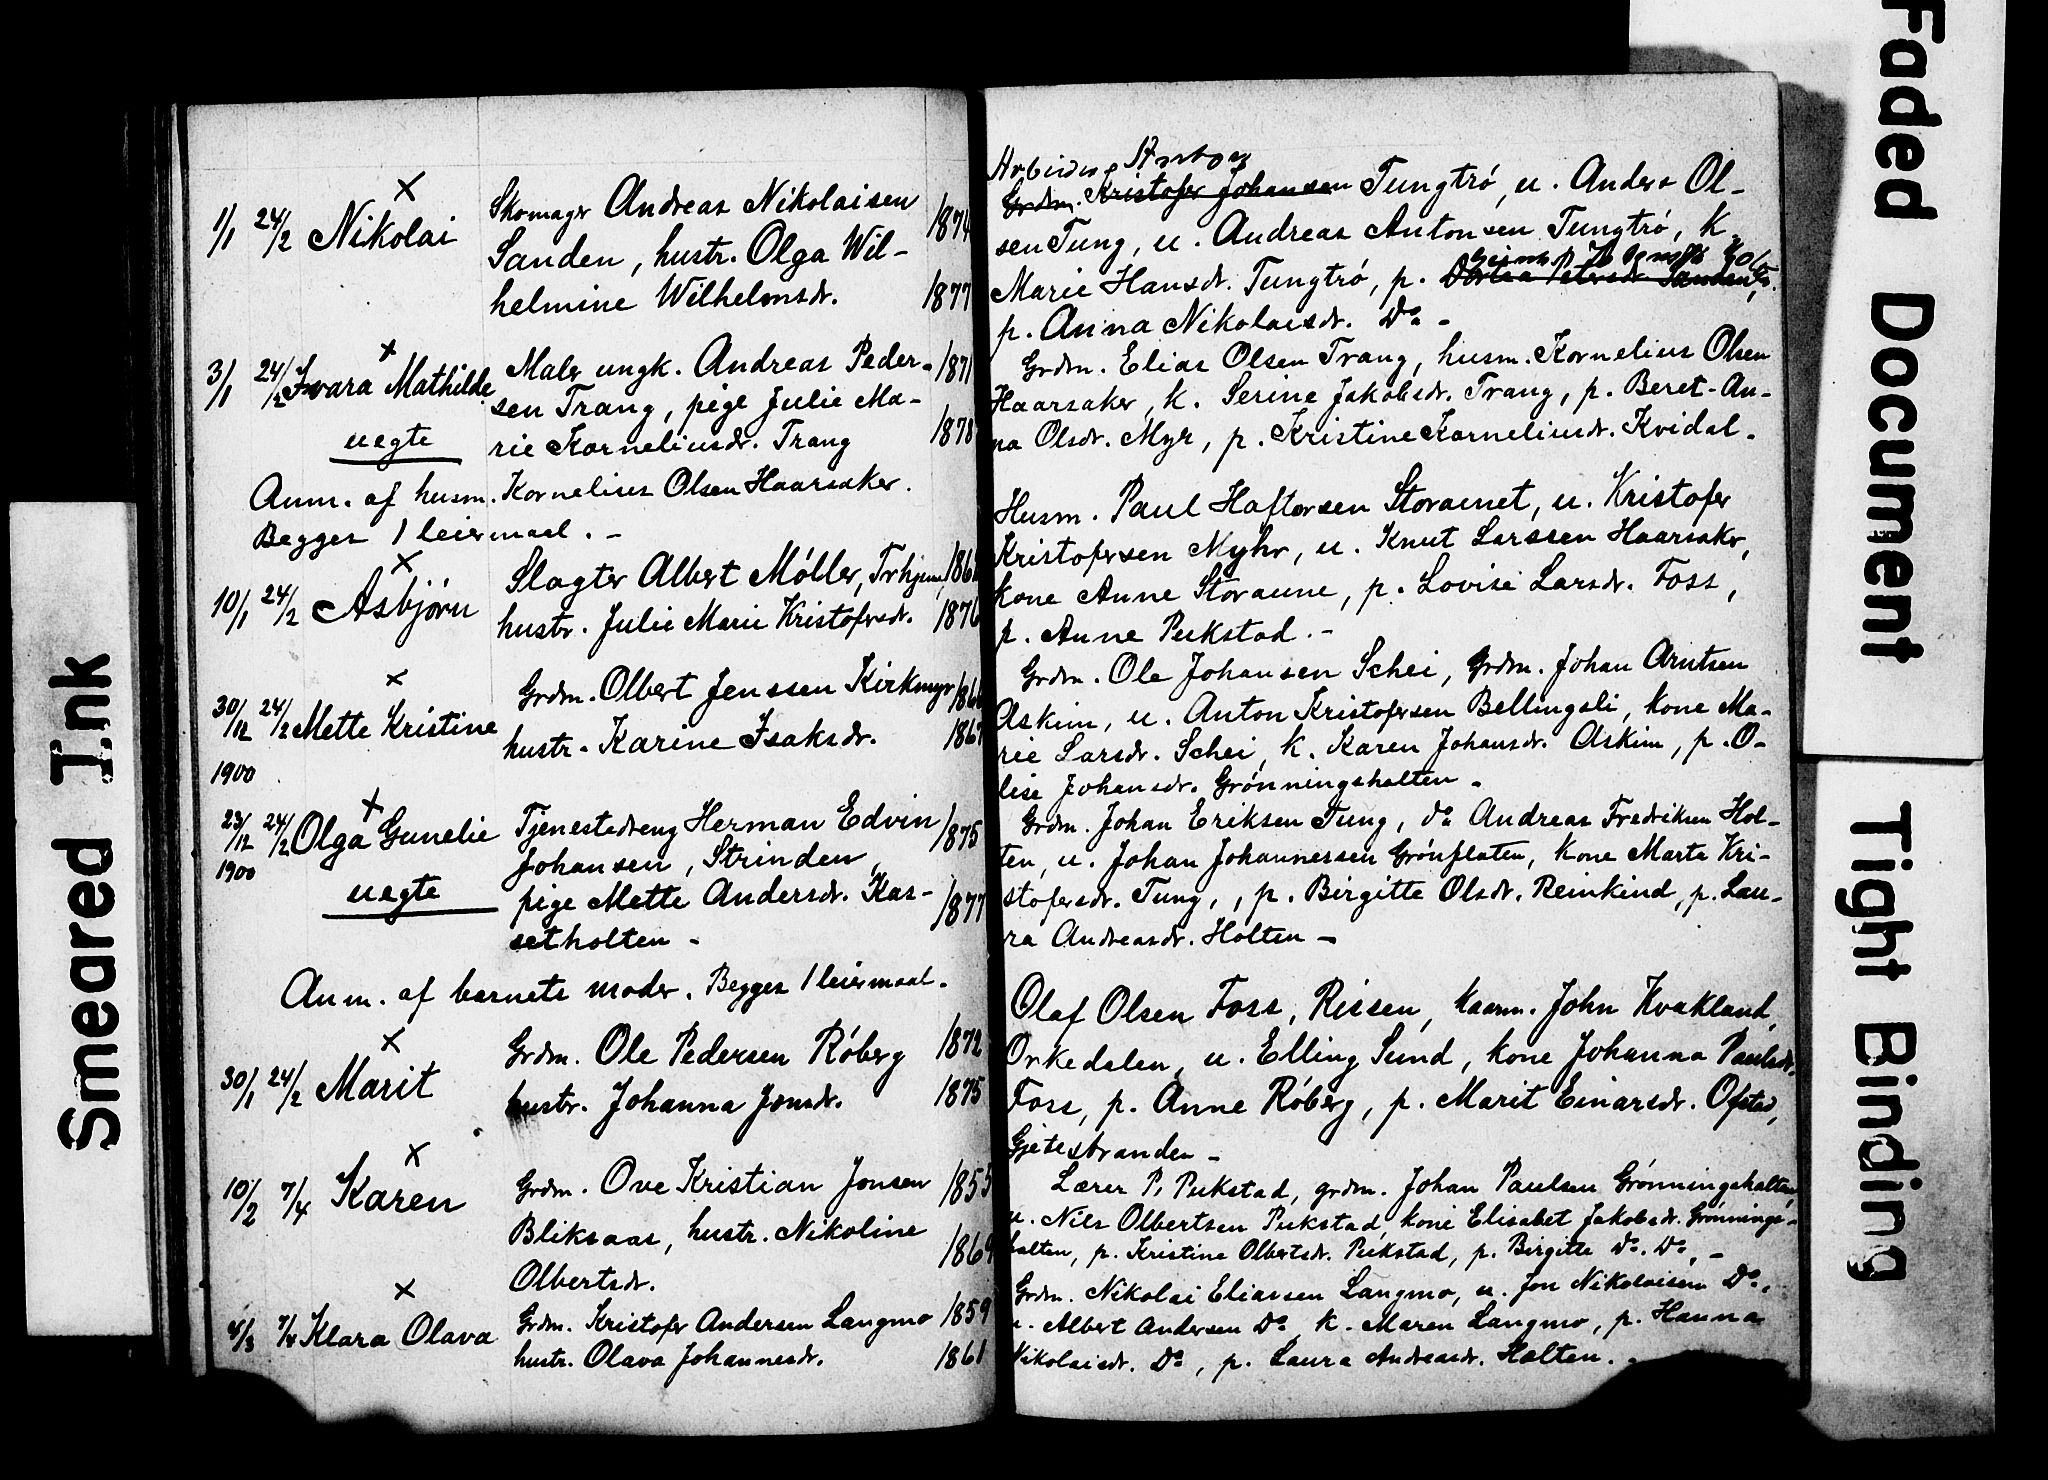 Smeared Ink
1/1 24/2 Nikolai
Skomager Andreas Nikolaisen 1874
Sanden, hustr. Olga Wil-
helmine Wilhelmsdr. 1877
3/1 24/2 Ivara Mathilde
uegte
Maler ungk. Andreas Peder- 1871
sen Trang, pige Julie Ma-
rie Korneliusdr. Trang 1878
Anm. af husm. Kornelius Olsen Haarsaker.
Begges 1 leiermaal. -
10/1 24/2 Asbjörn
Slagter Albert Möller, Trhjem,
hustr. Julie Marie Kristofersdr. 1876
30/12 24/2 Mette Kristine
1900
Grdm. Olbert Jenssen Kirkmyr
hustr. Karine Isaksdr. 1867
23/12 24/2 Olga Gunelie
1900
uegte
Tjenestedreng Herman Edvin 1875
Johansen, Strinden,
pige Mette Andersdr. Kas- 1877
setholten -
Anm. af barnets moder. Begges 1 leiermaal.
30/1 24/2 Marit
Grdm. Ole Pedersen Röberg 1872
hustr. Johanna Jonsdr. 1875
10/2 7/4 Karen
Grdm. Ove Kristian Jonsen 1855
Bliksaas, hustr. Nikoline 1869
Olbertsdr.
4/3 7/4 Klara Olava
Grdm. Kristofer Andersen Langmo 1859
hustr. Olava Johannesdr. 1861
Arbeider
Grdm. Kristofer Johansen Tungtrö, u. Anders Ol-
sen Tung, u. Andreas Antonsen Tungtrö, k.
Marie Hansdr. Tungtrö, p. Dortea Petersdr. Sanden,
p. Anna Nikolaisdr. Do. -
Grdm. Elias Olsen Trang, husm. Kornelius Olsen
Haarsaker, k. Serine Jakobsdr. Trang, p. Beret-An-
na Olsdr. Myr, p. Kristine Korneliusdr. Kvidal.
Husm. Paul Haftorsen Storaunet, u. Kristofer
Kristofersen Myhr, u. Knut Larssen Haarsaker,
kone Anne Storaune, p. Lovise Larsdr. Foss,
p. Anne Pukstad. -
Grdm. Ole Johansen Schei, Grdm. Johan Arntsen
Askim, u. Anton Kristofersen Bellingsli, kone Ma-
rie Larsdr. Schei, k. Karen Johansdr. Askim, p. O-
lise Johansdr. Grönningsholten -
Grdm. Johan Eriksen Tung, do Andreas Fredriksen Hol-
ten, u. Johan Johannessen Grönflaten, kone Marta Kri-
stofersdr. Tung, , p. Birgitte Olsdr. Reinkind, p. Lau-
ra Andreasdr. Holten -
Olaf Olsen Foss, Rissen, kaarm. John Kvakland,
Orkedalen, u. Elling Sund, kone Johanna Paulsdr.
Foss, p. Anne Röberg, p. Marit Einarsdr. Ofstad,
Gjetestranden -
Lærer P. Pukstad, grdm. Johan Paulsen Grönningsholten,
u. Nils Olbertsen Pukstad, kone Elisabet Jakobsdr. Grönnings-
holten, p. Kristine Olbertsdr. Pukstad, p. Birgitte Do. Do., -
Grdm. Nikolai Eliassen Langmo, u. Jon Nikolaisen Do.,
u. Albert Andersen Do, k. Maren Langmo, p. Hanna
Nikolaisdr. Do, p. Laura Andreasdr. Holten. -
Faded Document
Tight Binding